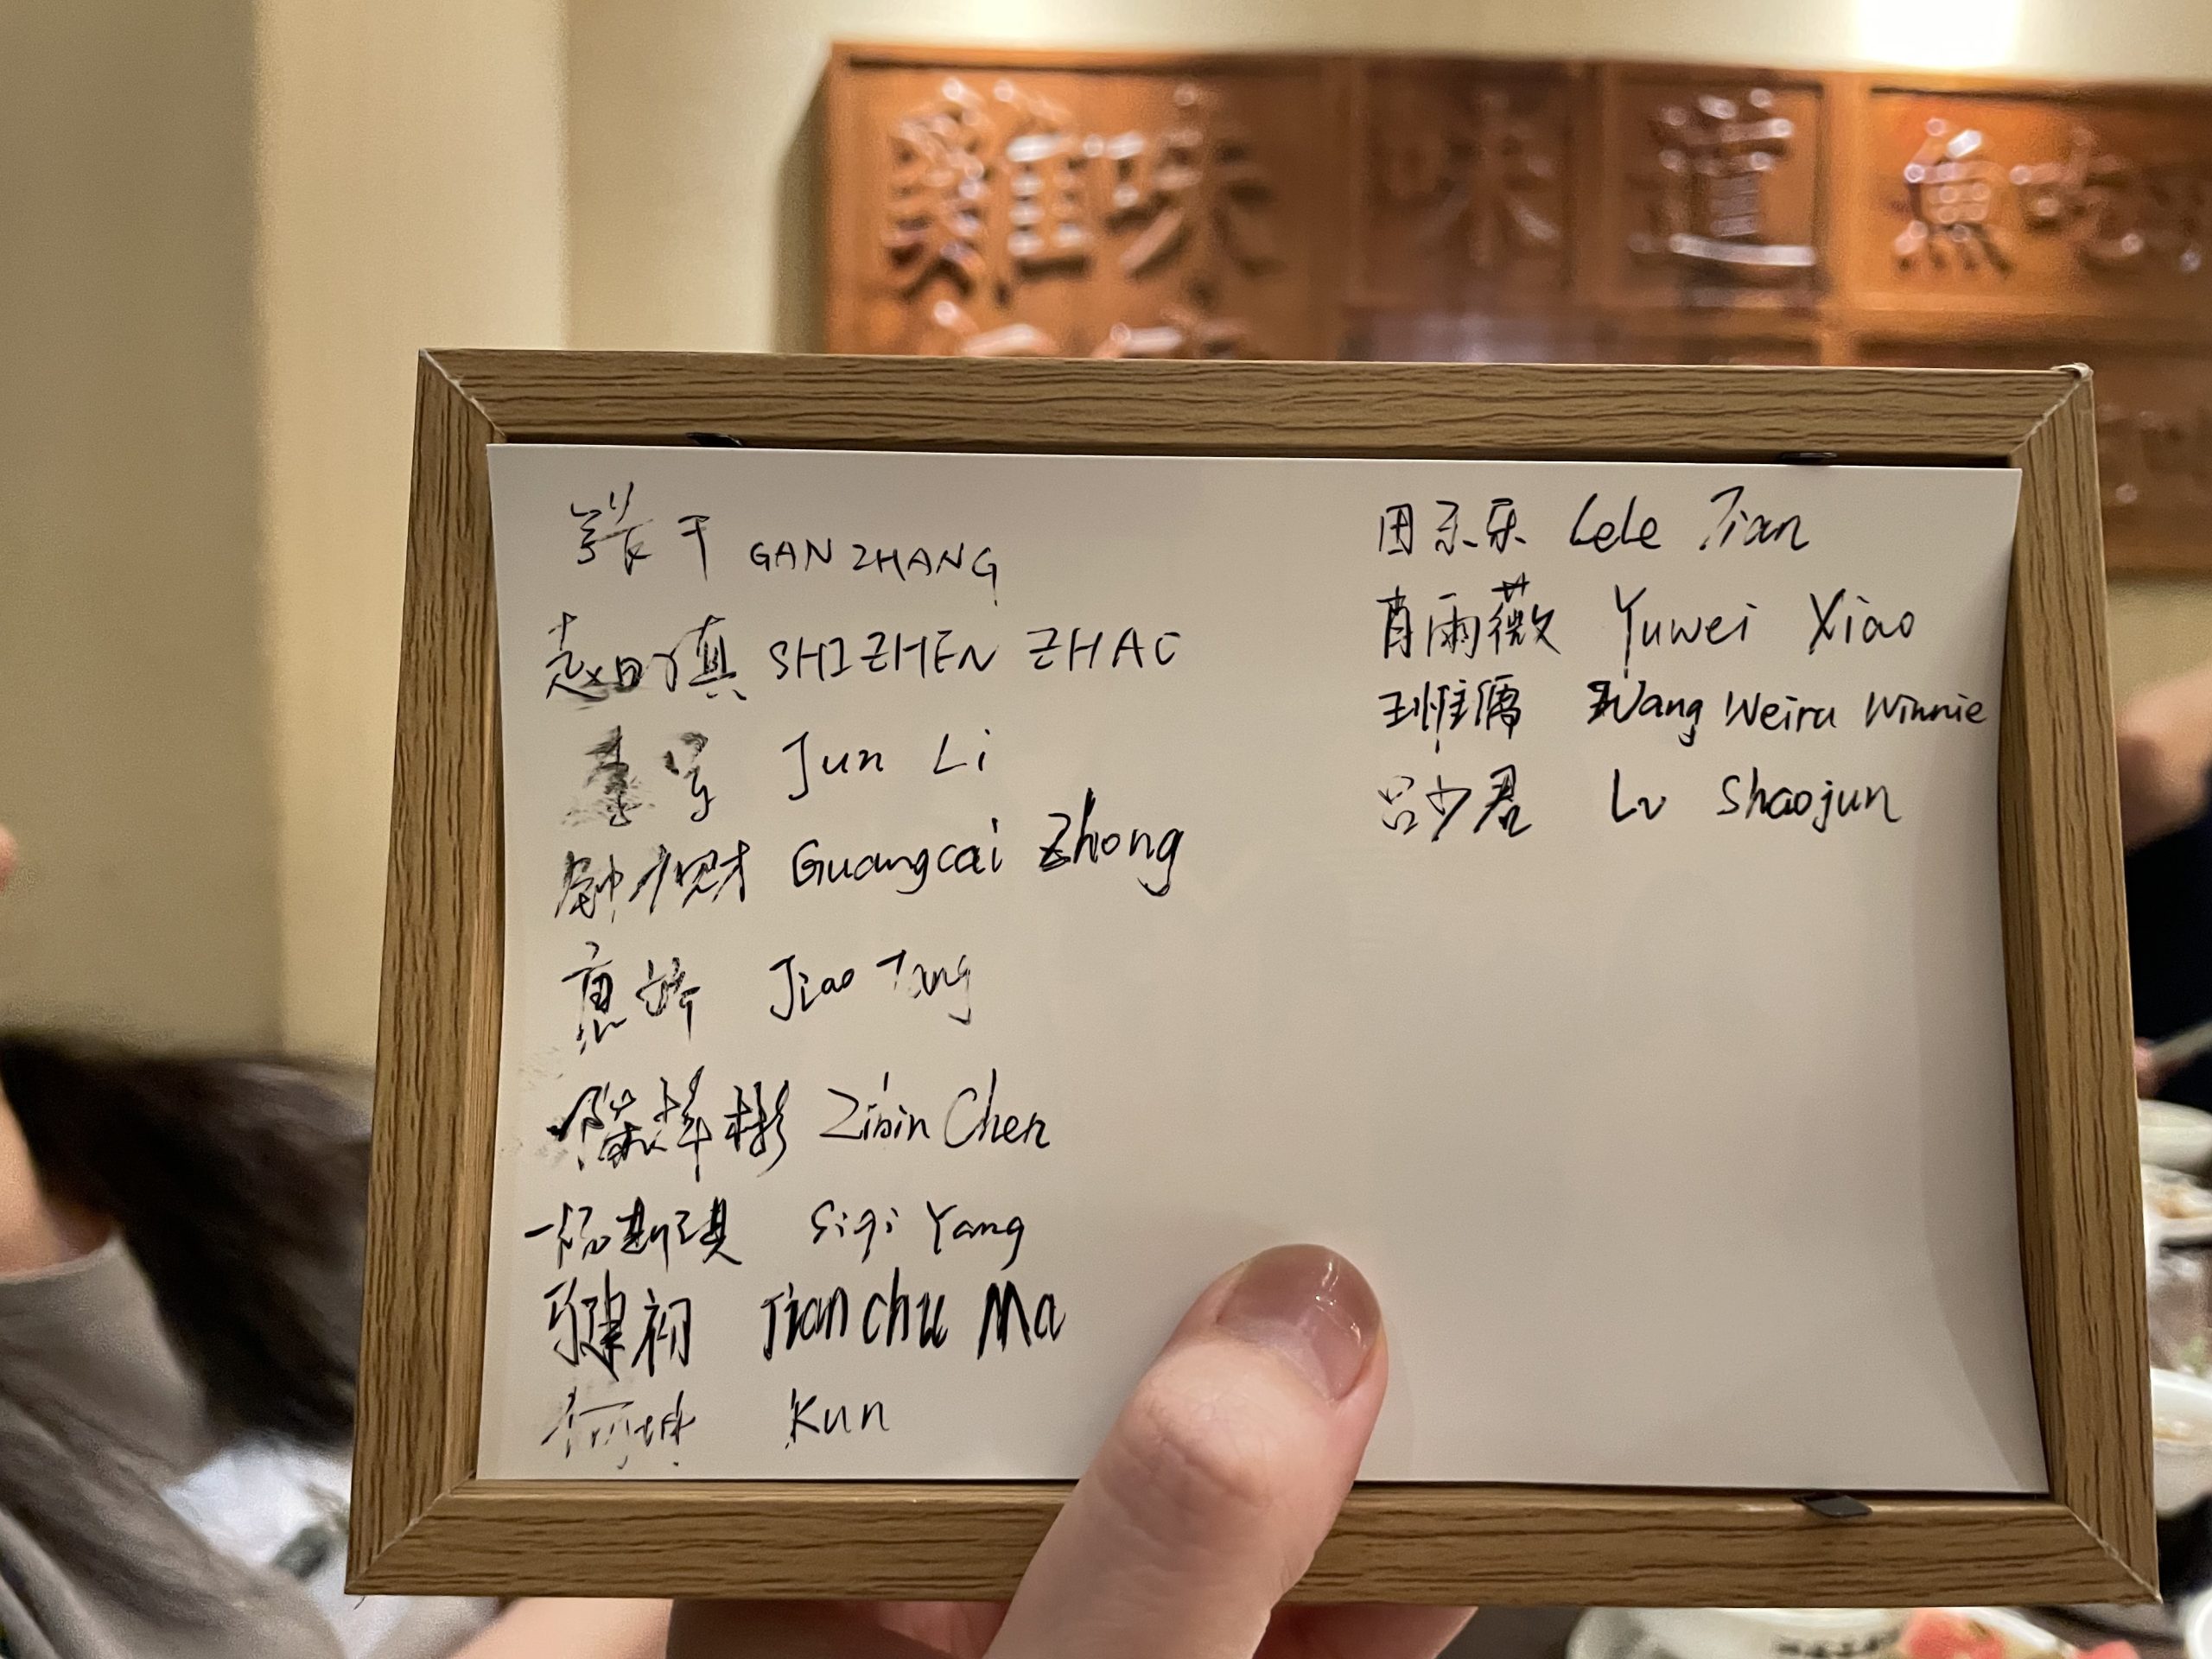 雞味 味道 魚吃
张干 GAN ZHANG
赵时真 SHIZHEN ZHAO
李军 Jun Li
钟广财 Guangcai Zhong
唐娇 Jiao Tang
陈梓彬 Zibin Chen
杨斯琪 Siqi Yang
马建初 Jianchu Ma
何坤 Kun
田乐乐 LeLe Tian
肖雨薇 Yuwei Xiao
王惟儒 Wang Weiru Winnie
吕少君 Lv Shaojun